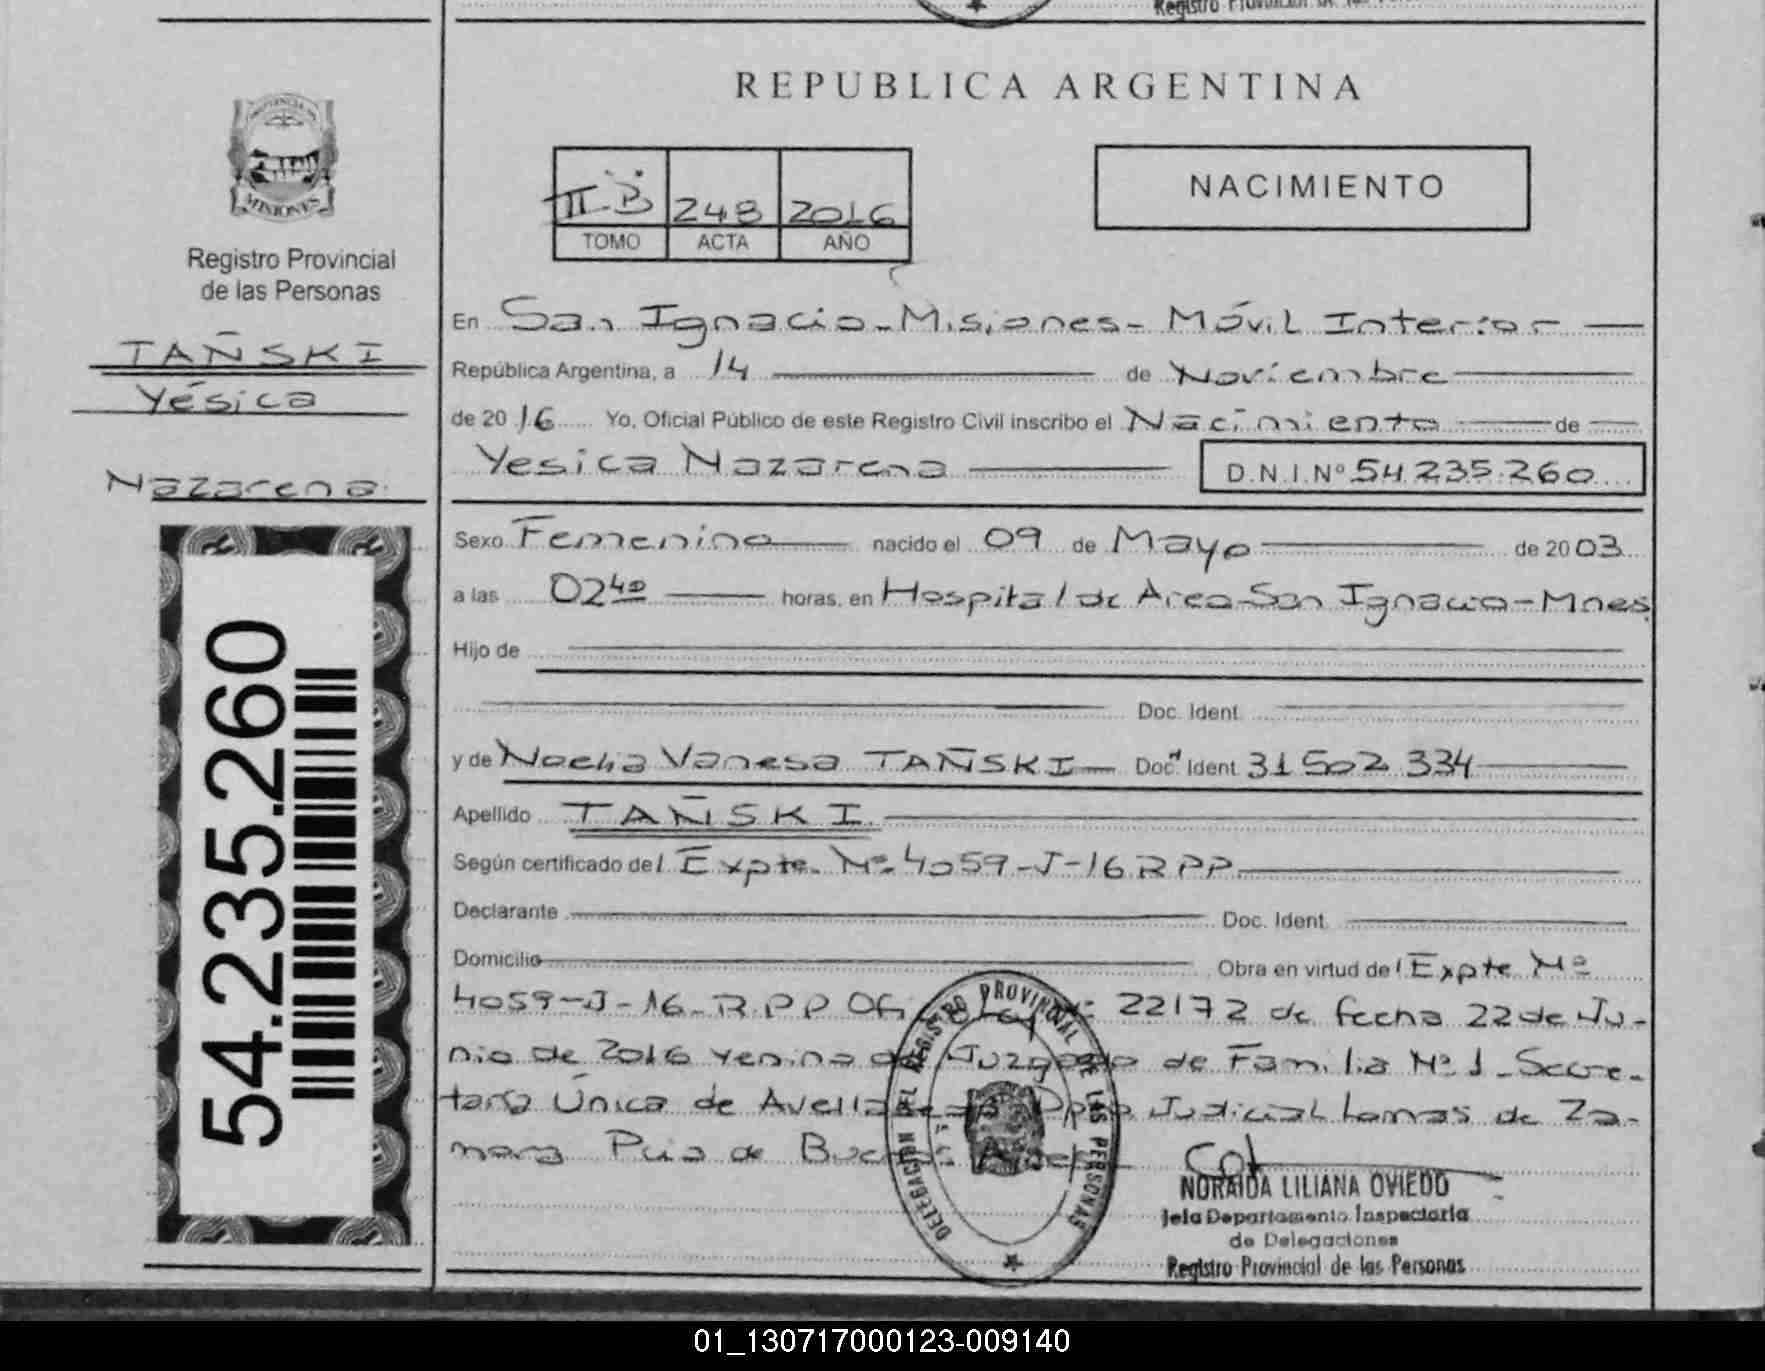 Registro Provincial de las Personas
REPUBLICA ARGENTINA
NACIMIENTO
MISIONES
Registro Provincial
de las Personas
TAÑSKI
Yésica
Nazarena
54.235.260
II-B 248 2016
TOMO ACTA AÑO
En San Ignacio - Misiones - Móvil Interior
República Argentina, a 14 de Noviembre
de 2016 Yo, Oficial Público de este Registro Civil inscribo el Nacimiento de
Yesica Nazarena D.N.I. Nº 54.235.260
Sexo Femenino nacido el 09 de Mayo de 2003
a las 02 40 horas, en Hospital de Area San Ignacio - Mnes
Hijo de
Doc. Ident.
y de Noelia Vanesa TAÑSKI Doc. Ident. 31502334
Apellido TAÑSKI
Según certificado del Expte. Nº 4059-J-16 RPP
Declarante Doc. Ident.
Domicilio Obra en virtud del Expte Nº
4059-J-16-R.P.P 22172 de fecha 22 de Ju-
nio de 2016 Juzgado de Familia Nº 1 - Secre-
taría Única de Avellaneda Judicial Lomas de Za-
mora Pcia de
DELEGACION DEL REGISTRO PROVINCIAL DE LAS PERSONAS
NORAIDA LILIANA OVIEDO
Jefa Departamento Inspectoria
de Delegaciones
Registro Provincial de las Personas
01_130717000123-009140